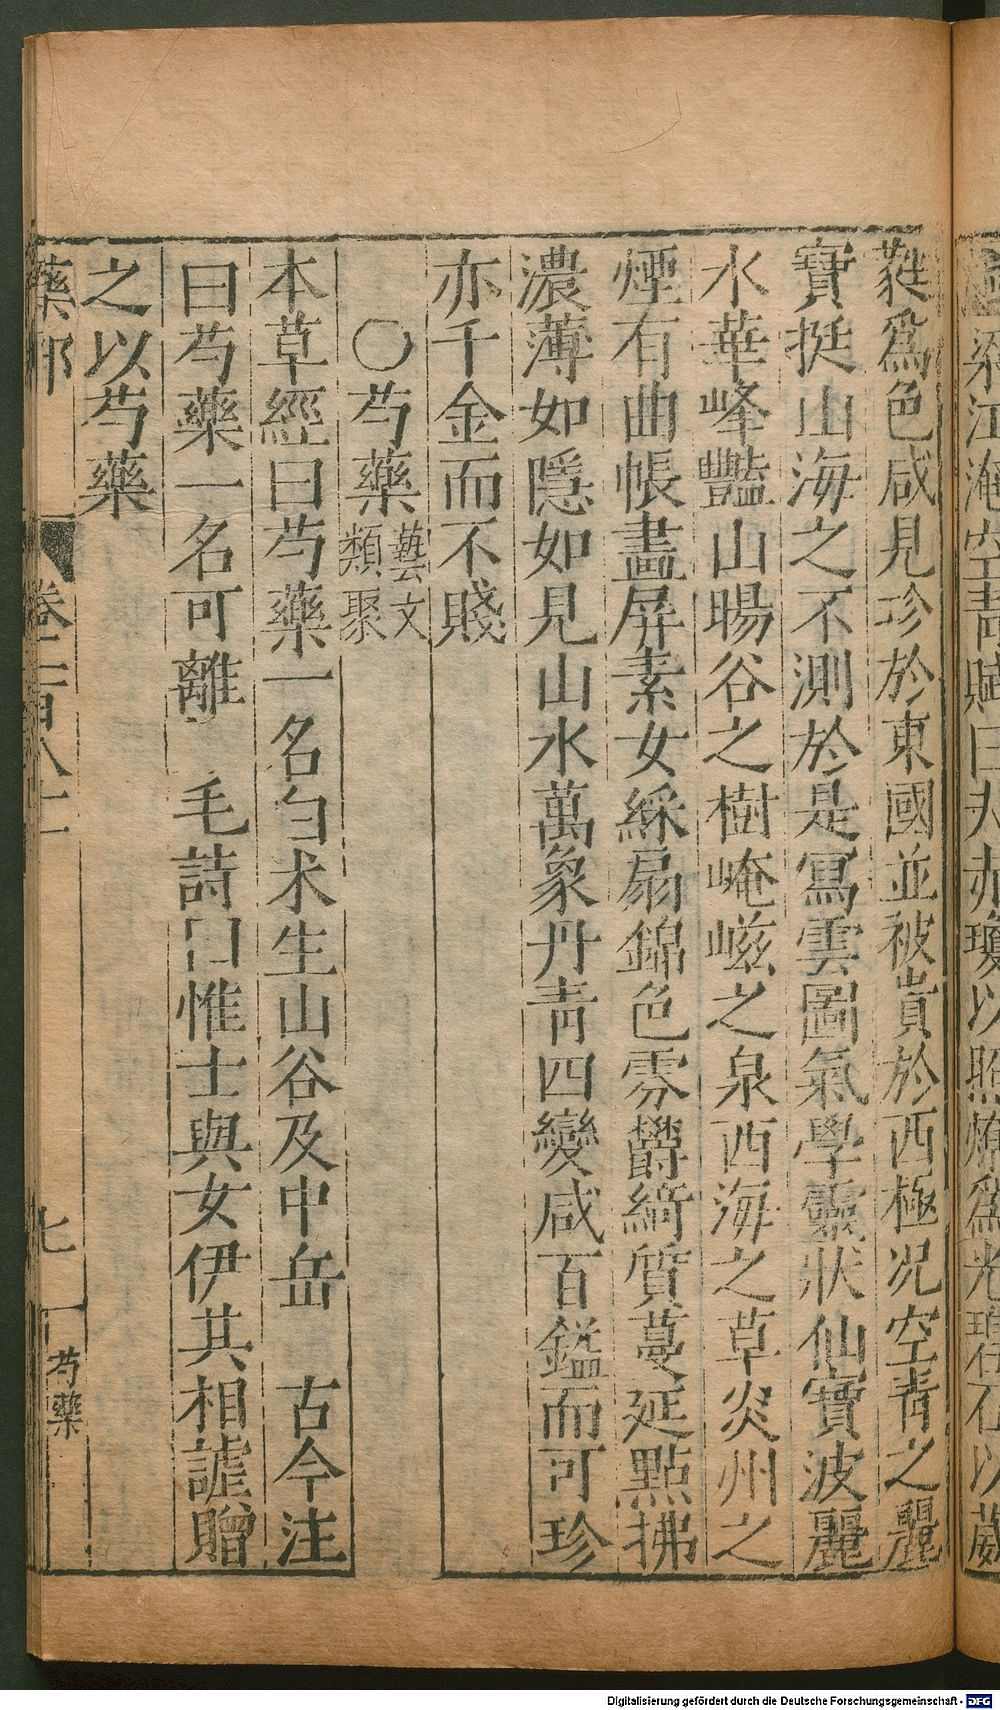 梁江淹空青賦曰夫赤瓊以照燎爲光碧石以葳
蕤爲色咸見珍於東國並被貴於西極况空青之麗
寶挺山海之不測於是寫雲圖氣學靈狀仙寶波麗
水華峰豔山暘谷之樹崦嵫之泉西海之草炎州之
煙有曲帳畫屏素女綵扇錦色雰鬱綺質蔓延點拂
濃薄如隱如見山水萬象丹青四變咸百鎰而可珍
亦千金而不賤
〇芍藥藝文
類聚
本草經曰芍藥一名白术生山谷及中岳 古今注
曰芍藥一名可離 毛詩曰惟士與女伊其相謔贈
之以芍藥
藥部 卷二百八十二 七 芍藥
Digitalisierung gefördert durch die Deutsche Forschungsgemeinschaft - DFG